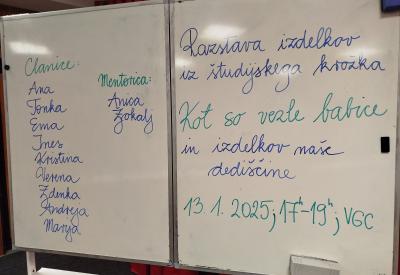 Članice:
Ana
Tonka
Ema
Ines
Kristina
Verena
Zdenka
Andreja
Marija
Mentorica:
Anica
Žokalj
Razstava izdelkov
iz študijskega krožka
Kot so vezle babice
in izdelkov naše
dediščine
13. 1. 2025; 17h-19h; VGC